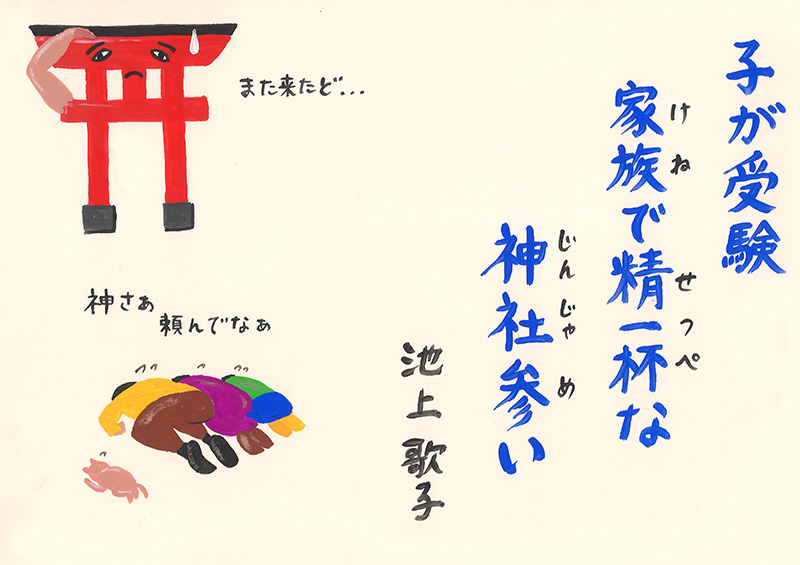 子が受験
家族で精一杯な
けね
せっぺ
神社参い
じんじゃ
め
池上歌子
また来たど...
神さぁ
頼んでなぁ